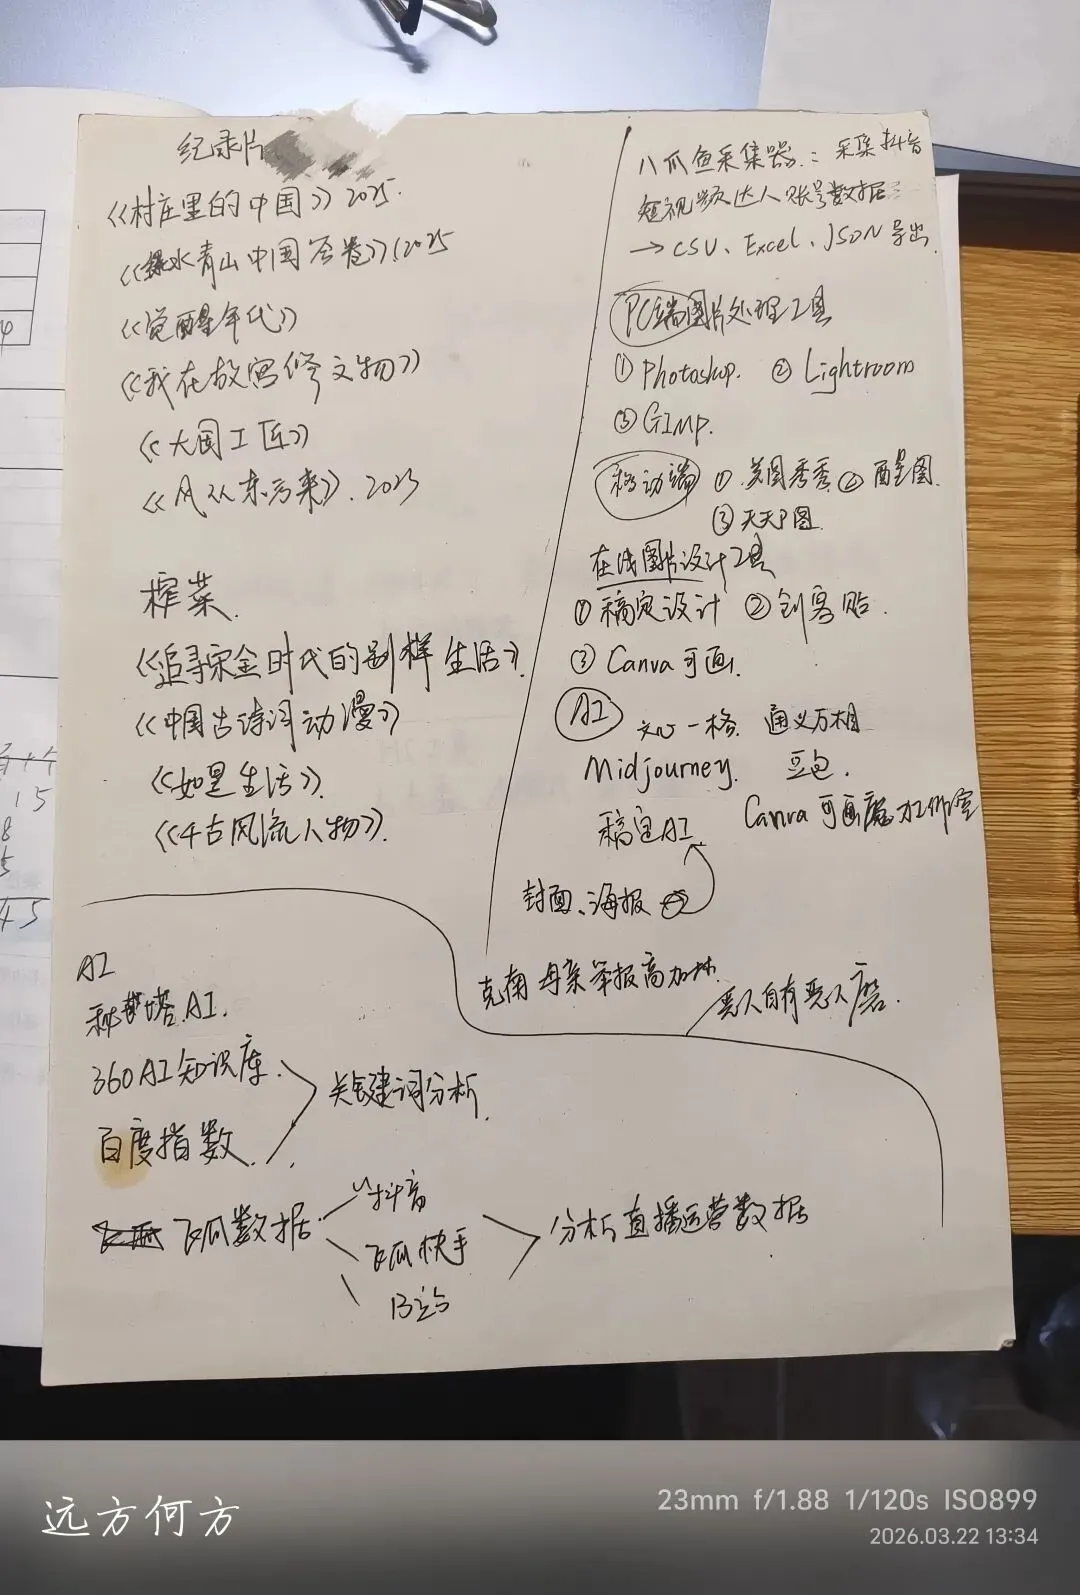 纪录片
《村庄里的中国》2025.
《绿水青山中国答卷》(2025
《觉醒年代》
《我在故宫修文物》
《大国工匠》
《风从东方来》.2023
榨菜.
《追寻宋金时代的别样生活》.
《中国古诗词动漫》
《如是生活》.
《千古风流人物》.
八爪鱼采集器.：采集抖音
短视频达人账号数据
→ CSV、Excel、JSON导出.
PC端图片处理工具
① Photoshop. ② Lightroom
③ GIMP.
移动端 ① 美图秀秀 ② 醒图.
③ 天天P图
在线图片设计工具
① 稿定设计 ② 创客贴.
③ Canva可画.
AI 文心一格. 通义万相
Midjourney. 豆包.
稿定AI Canva可画魔力工作室
封面、海报
克南 母亲举报高加林.
恶人自有恶人磨.
AI
秘塔AI.
360AI知识库.
百度指数.
关键词分析.
飞瓜数据.
抖音
飞瓜快手
B站
分析直播运营数据
15
8
5
45
远方何方
23mm f/1.88 1/120s ISO899
2026.03.22 13:34